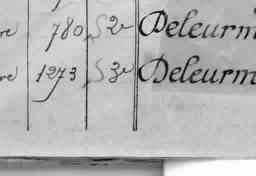 re 780 S 2e Deleurm
re 1273 S 3e Deleurm